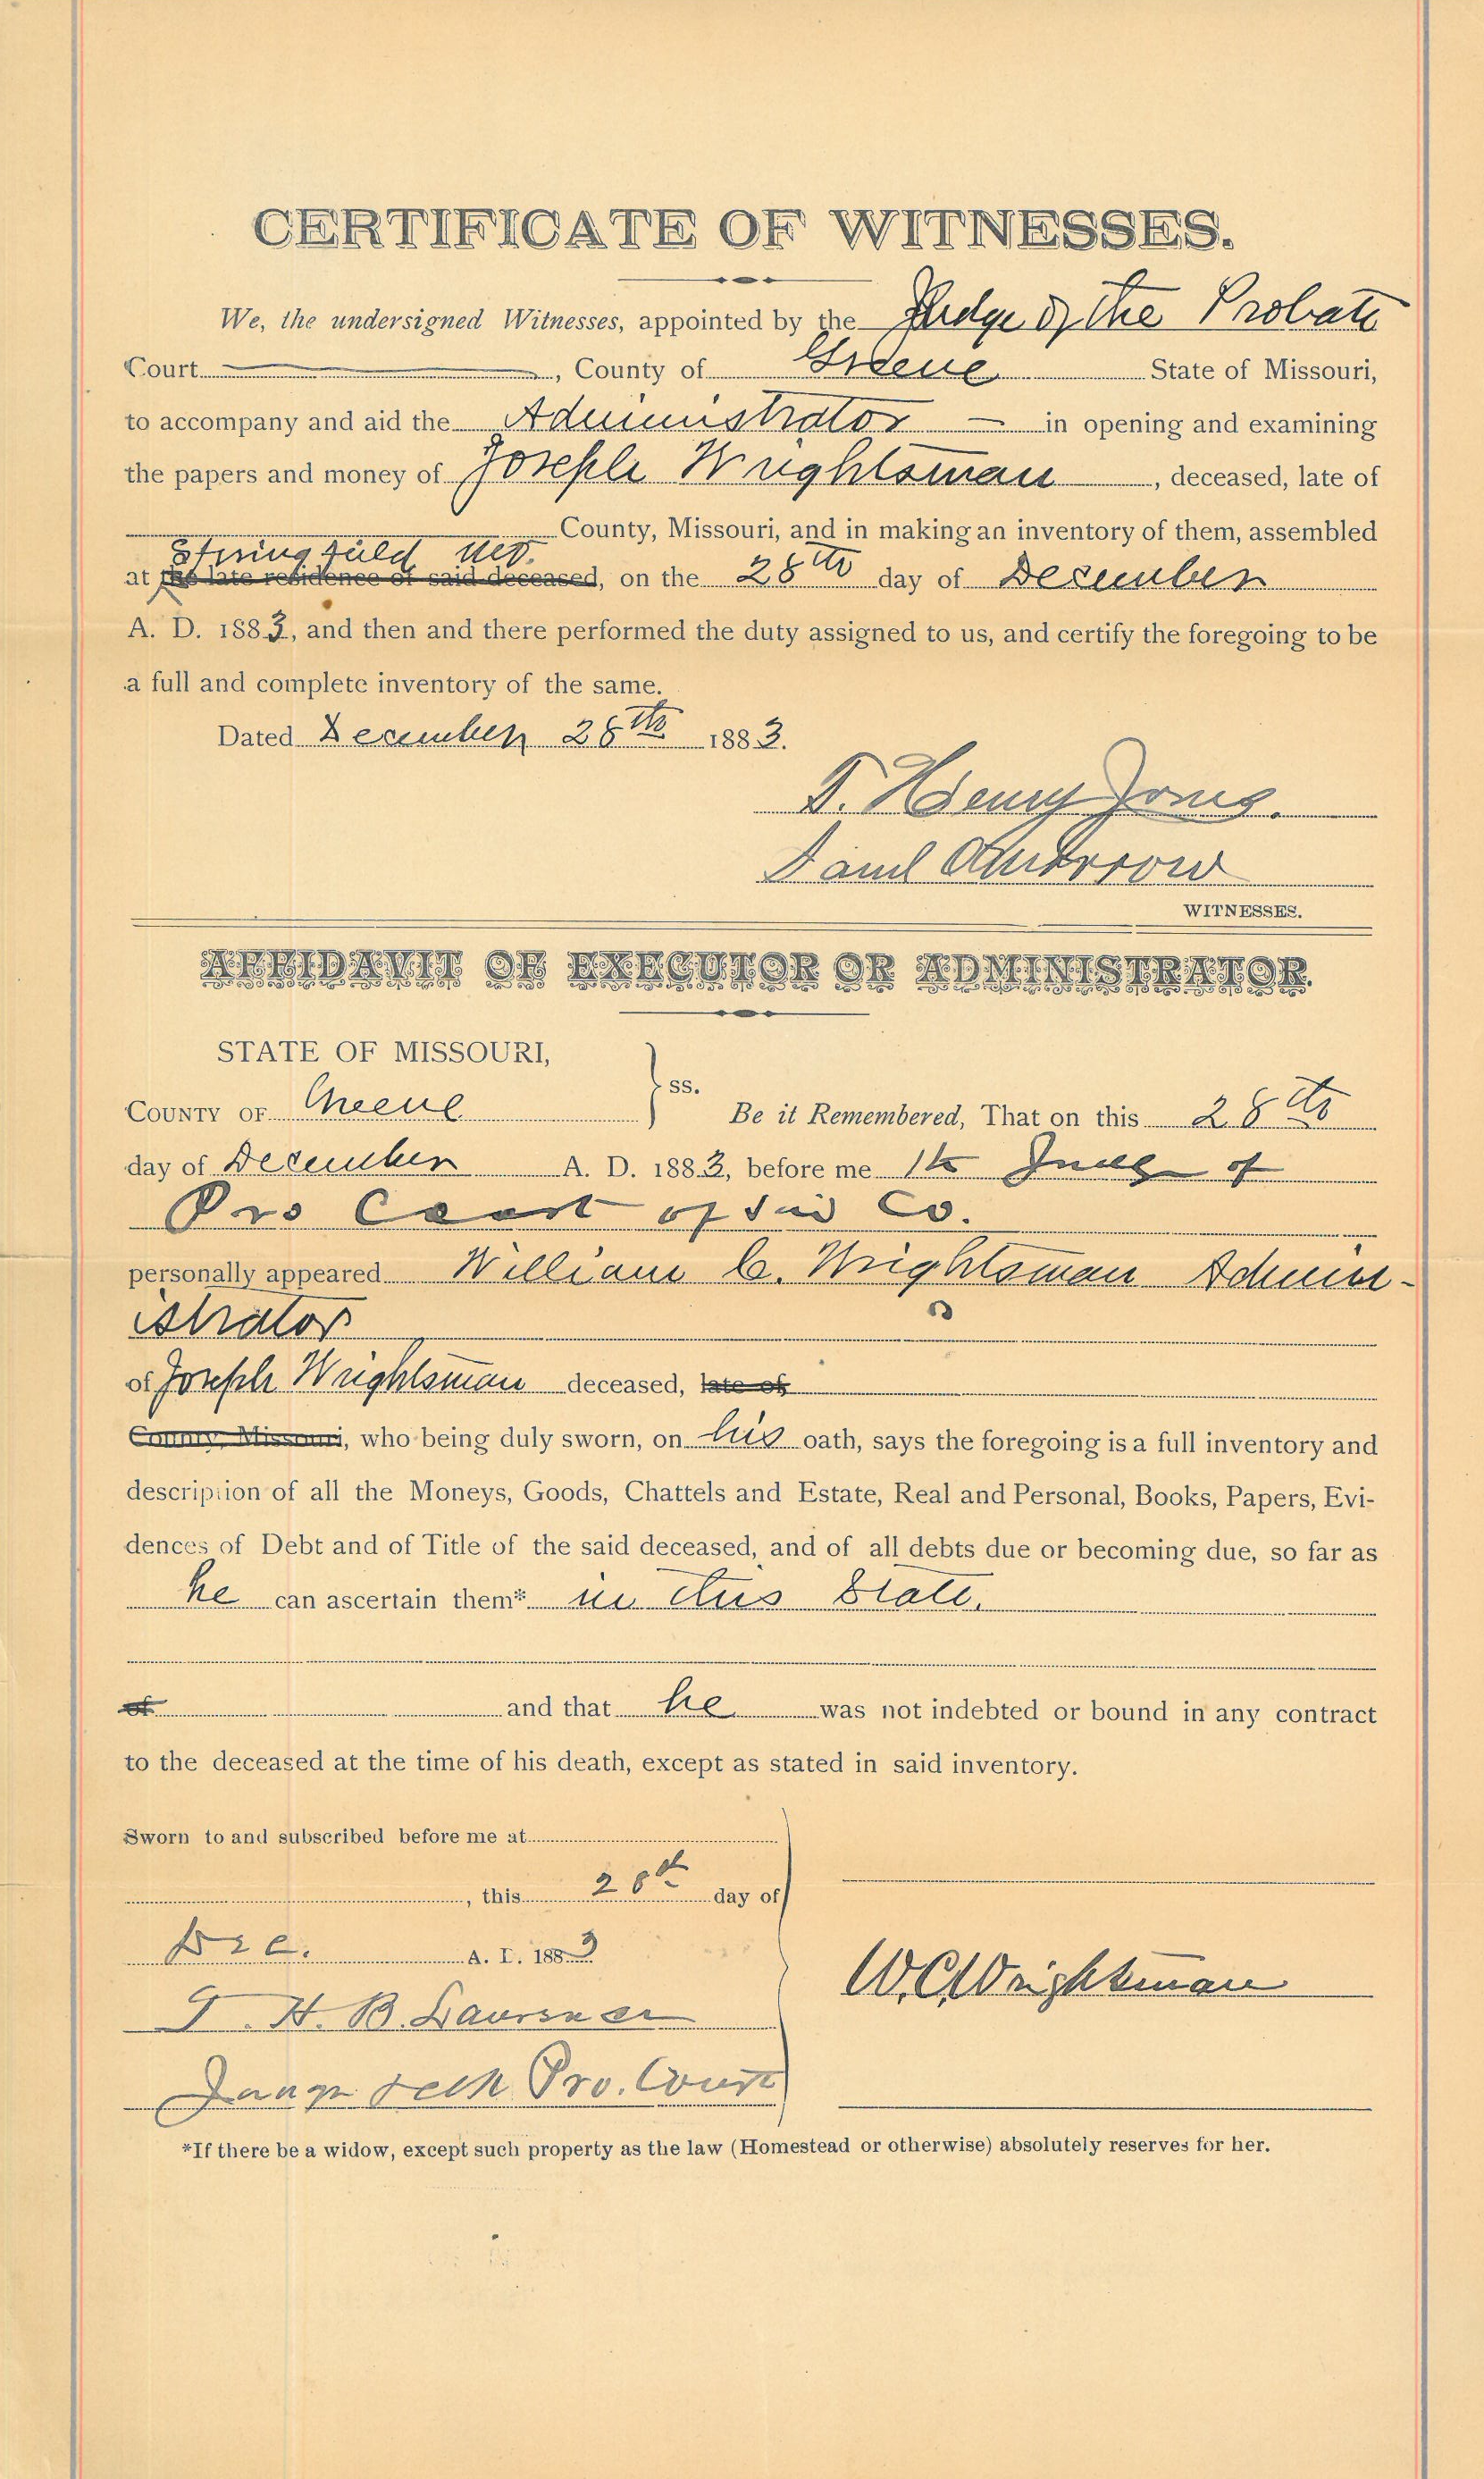 CERTIFICATE OF WITNESSES.
We, the undersigned Witnesses, appointed by the Judge of the Probate
Court, County of Greene State of Missouri,
to accompany and aid the Administrator — in opening and examining
the papers and money of Joseph Wrightsman, deceased, late of
County, Missouri, and in making an inventory of them, assembled
Springfield Mo.
at the late residence of said deceased, on the 28th day of December
A. D. 1883, and then and there performed the duty assigned to us, and certify the foregoing to be
a full and complete inventory of the same.
Dated December 28th 1883.
T. Henry Jones.
Saml
WITNESSES.
AFFIDAVIT OF EXECUTOR OR ADMINISTRATOR.
STATE OF MISSOURI,
COUNTY OF Greene ss. Be it Remembered, That on this 28th
day of December A. D. 1883, before me Judge of
Pro Court of said Co.
personally appeared William C. Wrightsman Admin-
istrator
of Joseph Wrightsman deceased, late of
County, Missouri, who being duly sworn, on his oath, says the foregoing is a full inventory and
description of all the Moneys, Goods, Chattels and Estate, Real and Personal, Books, Papers, Evi-
dences of Debt and of Title of the said deceased, and of all debts due or becoming due, so far as
he can ascertain them* in this State.
of and that he was not indebted or bound in any contract
to the deceased at the time of his death, except as stated in said inventory.
Sworn to and subscribed before me at
, this 28th day of
Dec. A. D. 1883
W.C. Wrightsman
T. H. B. Lawrence
Judge Pro. Court
*If there be a widow, except such property as the law (Homestead or otherwise) absolutely reserves for her.